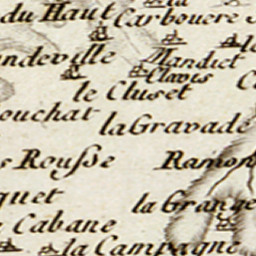 la
du Haut Carbouere
ndeville Mandiet
Clavis
le Cluset
ouchat la Gravade
s Rousse Ramon
guet la Grange
Cabane
la Campagne